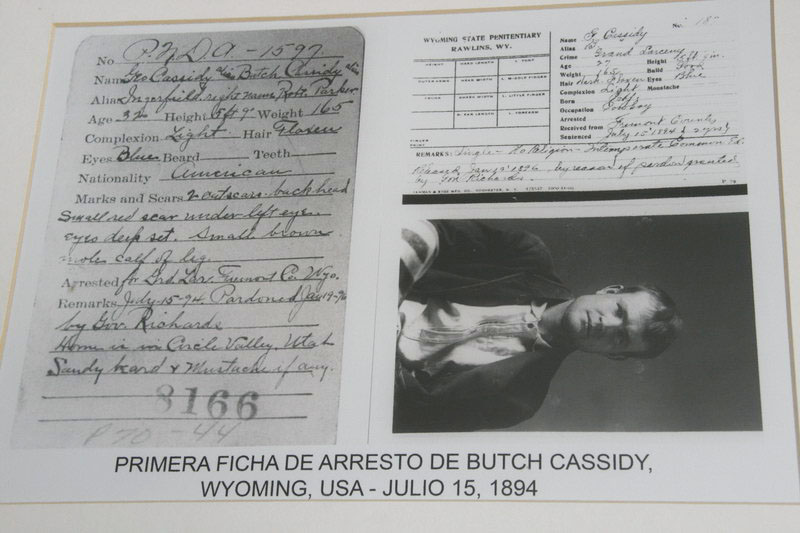 No P.N.D.A - 1597
Name Geo Cassidy alias Butch Cassidy alias
Alias Ingerfield. right name Robt. Parker
Age 32 Height 5ft 9" Weight 165
Complexion Light Hair Flaxen
Eyes Blue Beard Teeth
Nationality American
Marks and Scars 2 cut scars back head
Small red scar under left eye.
eyes deep set. Small brown
mole calf of leg.
Arrested for Grd Lar. Fremont Co. Wyo.
Remarks July-15-94 Pardoned Jan 19-96
by Gov. Richards
Home is in Circle Valley, Utah
Sandy beard & Mustache if any.
8166
P 70 - 44
WYOMING STATE PENITENTIARY
RAWLINS, WY.
No. 187
Name G. Cassidy
Alias
Crime Grand Larceny
Age 27 Height 5 ft 9 in.
Weight 165 Build Good
Hair Dark Flaxen Eyes Blue
Complexion Light Moustache
Born
Occupation Cowboy
Arrested
Received from Fremont County
Sentenced July 15 1894 2 years
REMARKS: Single - No Religion - Intemperate Common Ed.
Released Jany 19 1896 by reason of pardon granted
by Gov. Richards.
PRIMERA FICHA DE ARRESTO DE BUTCH CASSIDY,
WYOMING, USA - JULIO 15, 1894